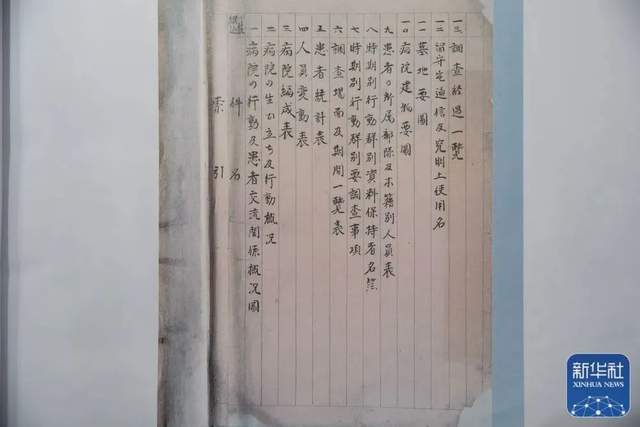 件名
索引
一 病院の行動及患者交流関係概況図
二 病院の生ひ立ち及行動概況
三 病院編成表
四 人員変動表
五 患者統計表
六 調査場面及期間一覧表
七 時期別行動群別要調査事項
八 時期別行動群別資料保持者名簿
九 患者の所属部隊及本籍別人員表
一〇 病院建物要図
一一 墓地要図
一二 留守宅追信及究明上使用名
一三 調査経過一覧
新华社
XINHUA NEWS